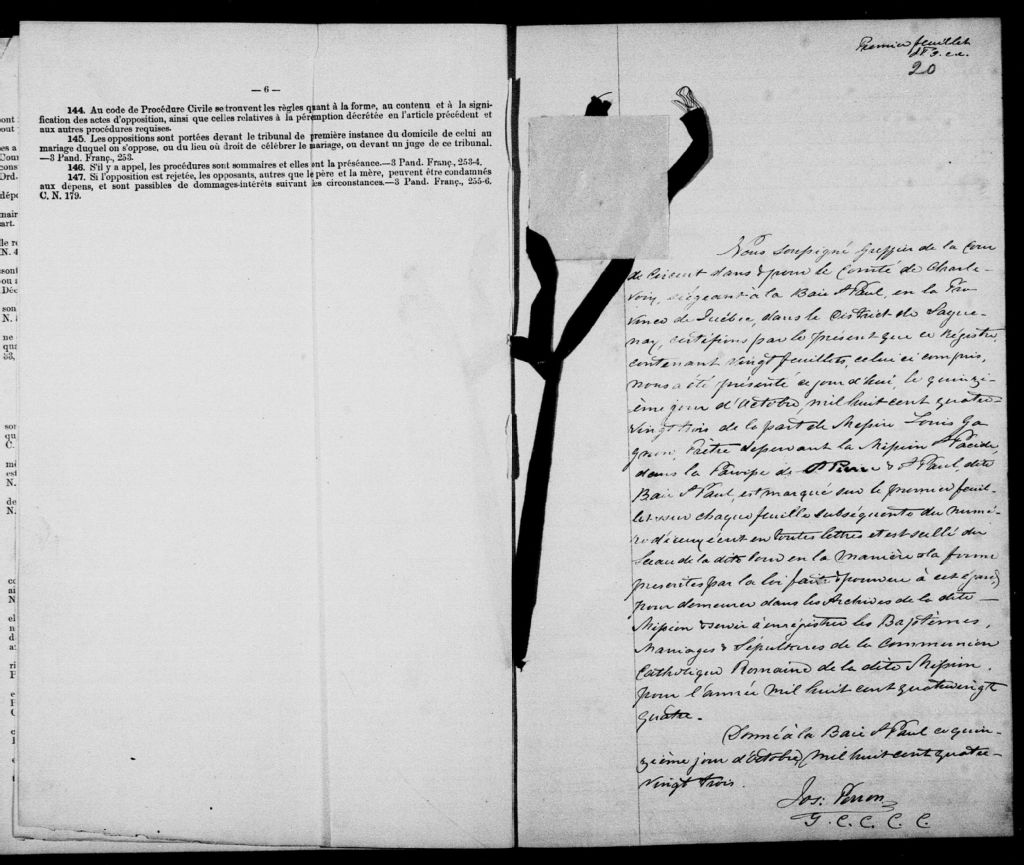 — 6 —
144. Au code de Procédure Civile se trouvent les règles quant à la forme, au contenu et à la signi-
fication des actes d'opposition, ainsi que celles relatives à la péremption décrétée en l'article précédent et
aux autres procédures requises.
145. Les oppositions sont portées devant le tribunal de première instance du domicile de celui au
mariage duquel on s'oppose, ou du lieu où droit de célébrer le mariage, ou devant un juge de ce tribunal.
—3 Pand. Franç., 253.
146. S'il y a appel, les procédures sont sommaires et elles ont la préséance.—3 Pand. Franç., 253-4.
147. Si l'opposition est rejetée, les opposants, autres que le père et la mère, peuvent être condamnés
aux depens, et sont passibles de dommages-intérêts suivant les circonstances.—3 Pand. Franç., 255-6.
C. N. 179.
Premier feuillet
20
Nous soussigné Greffier de la Cour
de Circuit dans & pour le Comté de Charle-
voix, siégeant à la Baie St Paul, en la Pro-
vince de Québec, dans le District de Sague-
nay, certifions par le présent que ce Régistre,
contenant vingt feuillets, celui ci compris,
nous a été présenté ce jour d'hui, le quinzi-
ème jour d'Octobre, mil huit cent quatre-
vingt trois de la part de Messire Louis Ga
gnon, Prêtre desservant la Mission St Placide,
dans la Paroisse de St Pierre & St Paul, dite
Baie St Paul, est marqué sur le premier feuil-
let & sur chaque feuille subséquente du numé-
ro d'iceux écrit en toutes lettres et est scellé du
Sceau de la dite Cour en la manière & la forme
prescrites par la loi faite & pourvue à cet égard,
pour demeurer dans les Archives de la dite
Mission & servir à enrégistrer les Baptêmes,
Mariages & Sépultures de la Communion
Catholique Romaine de la dite Mission,
pour l'année mil huit cent quatrevingt
quatre.
Donné à la Baie St Paul ce quin-
zième jour d'Octobre, mil huit cent quatre-
vingt trois.
Jos: Perron
G. C. C. C. C.